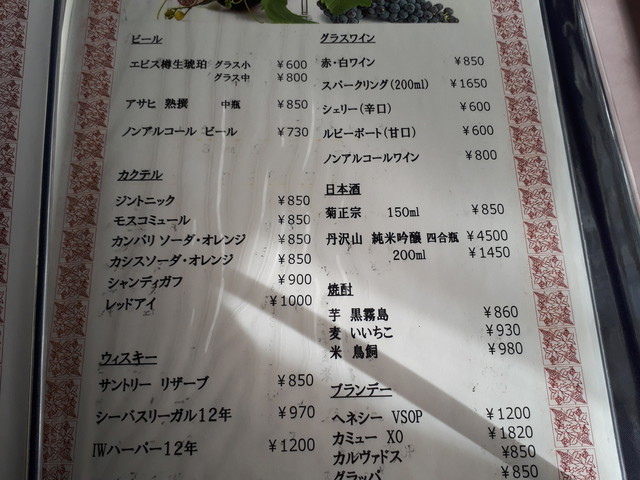 ビール
エビス樽生琥珀 グラス小 ¥600
グラス中 ¥800
アサヒ 熟撰 中瓶 ¥850
ノンアルコール ビール ¥730
カクテル
ジントニック ¥850
モスコミュール ¥850
カンパリ ソーダ・オレンジ ¥850
カシスソーダ・オレンジ ¥850
シャンディガフ ¥900
レッドアイ ¥1000
ウィスキー
サントリー リザーブ ¥850
シーバスリーガル12年 ¥970
IWハーパー12年 ¥1200
グラスワイン
赤・白ワイン ¥850
スパークリング(200ml) ¥1650
シェリー(辛口) ¥600
ルビーポート(甘口) ¥600
ノンアルコールワイン ¥800
日本酒
菊正宗 150ml ¥850
丹沢山 純米吟醸 四合瓶 ¥4500
200ml ¥1450
焼酎
芋 黒霧島 ¥860
麦 いいちこ ¥930
米 鳥飼 ¥980
ブランデー
ヘネシー VSOP ¥1200
カミュー XO ¥1820
カルヴァドス ¥850
グラッパ ¥850